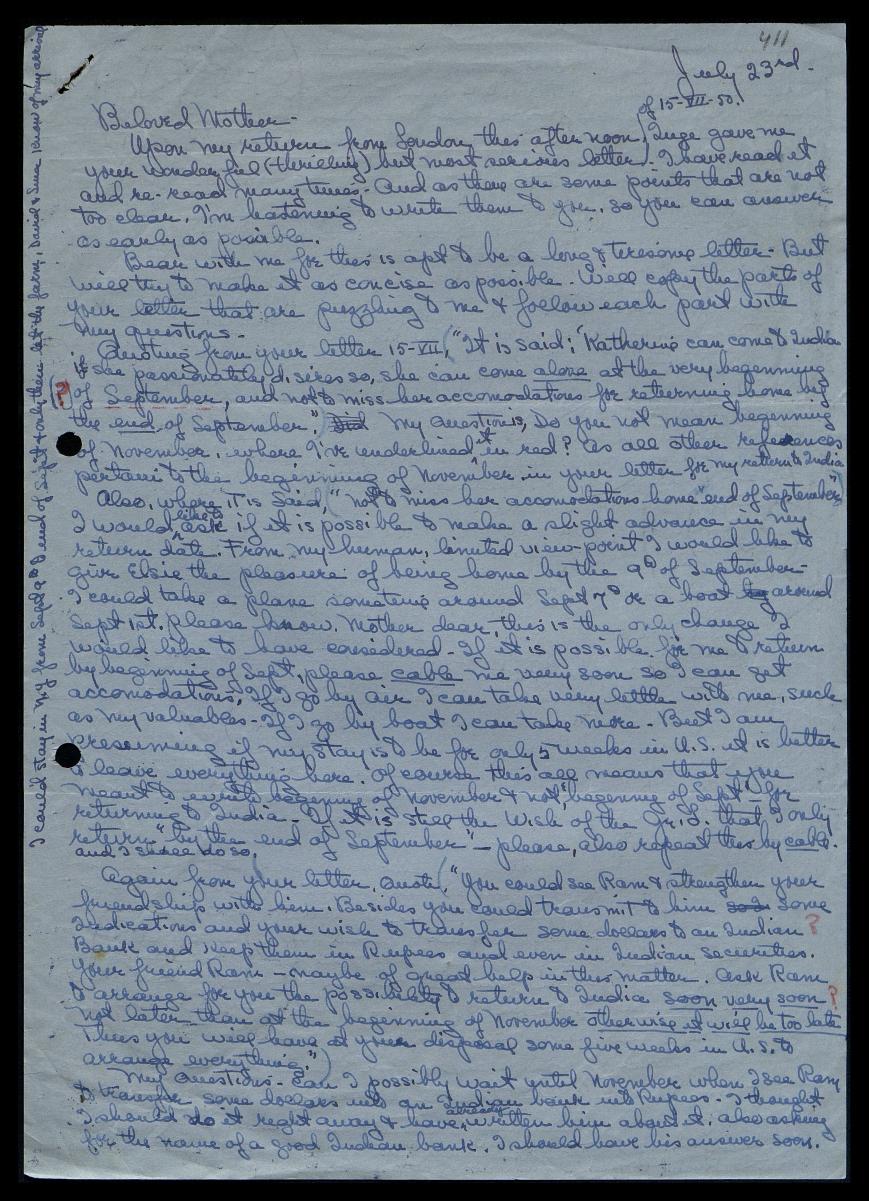 411
July 23rd.
Beloved Mother-
of 15-VII-50.
Upon my return from London this afternoon, Inge gave me
your wonderful (thrilling) but most serious letter. I have read it
and re-read many times. And as there are some points that are not
too clear, I'm hastening to write them to you, so you can answer
as early as possible.
Bear with me for this is apt to be a long & tiresome letter- But
will try to make it as concise as possible. Will copy the parts of
your letter that are puzzling to me & follow each part with
my questions-
Quoting from your letter 15-VII, "It is said; 'Katherine can come to India
if she passionately disires so, she can come alone at the very beginning
? of September, and not to miss her accomodations for returning home by
the end of September." Did My question is, Do you not mean beginning
of November, where I've underlined it in red? As all other references
pertain to the beginning of November in your letter for my return to India
Also, where it is said, "not to miss her accomodations home "end of September",
I would like to ask if it is possible to make a slight advance in my
return date. From my human, limited view-point I would like to
give Elsie the pleasure of being home by the 9th of September-
I could take a plane sometime around Sept 7th or a boat by around
Sept 1st. Please know, Mother dear, this is the only change I
would like to have considered- If it is possible for me to return
by beginning of Sept, please cable me very soon so I can get
accomodations; If I go by air I can take very little with me, such
as my valuables- If I go by boat I can take more- But I am
presuming if my stay is to be for only 5 weeks in U.S. it is better
to leave everything here. Of course this all means that you
meant to write beginning of November & not "beginning of Sept"- for
returning to India- If it is still the Wish of the Gr. I. that I only
return "by the end of September"- please, also repeat this by cable.
and I shall do so.
Again from your letter, quote, "You could see Ram & strengthen your
friendship with him. Besides you could transmit to him some
indications and your wish to transfer some dollars to an Indian ?
Bank and keep them in Rupees and even in Indian securities.
Your friend Ram - maybe of great help in this matter. Ask Ram
to arrange for you the possibility to return to India soon very soon ?
not later than at the beginning of November otherwise it will be too late
Thus you will have at your disposal some five weeks in U.S. to
arrange everything."
My questions- Can I possibly wait until November when I see Ram
to transfer some dollars into an Indian bank into Rupees- I thought
I should do it right away & have already written him about it, also asking
for the name of a good Indian bank. I should have his answer soon.
I could stay in N.Y. from Sept 9th to end of Sept & only then let the farm, David & Sina know of my arrival